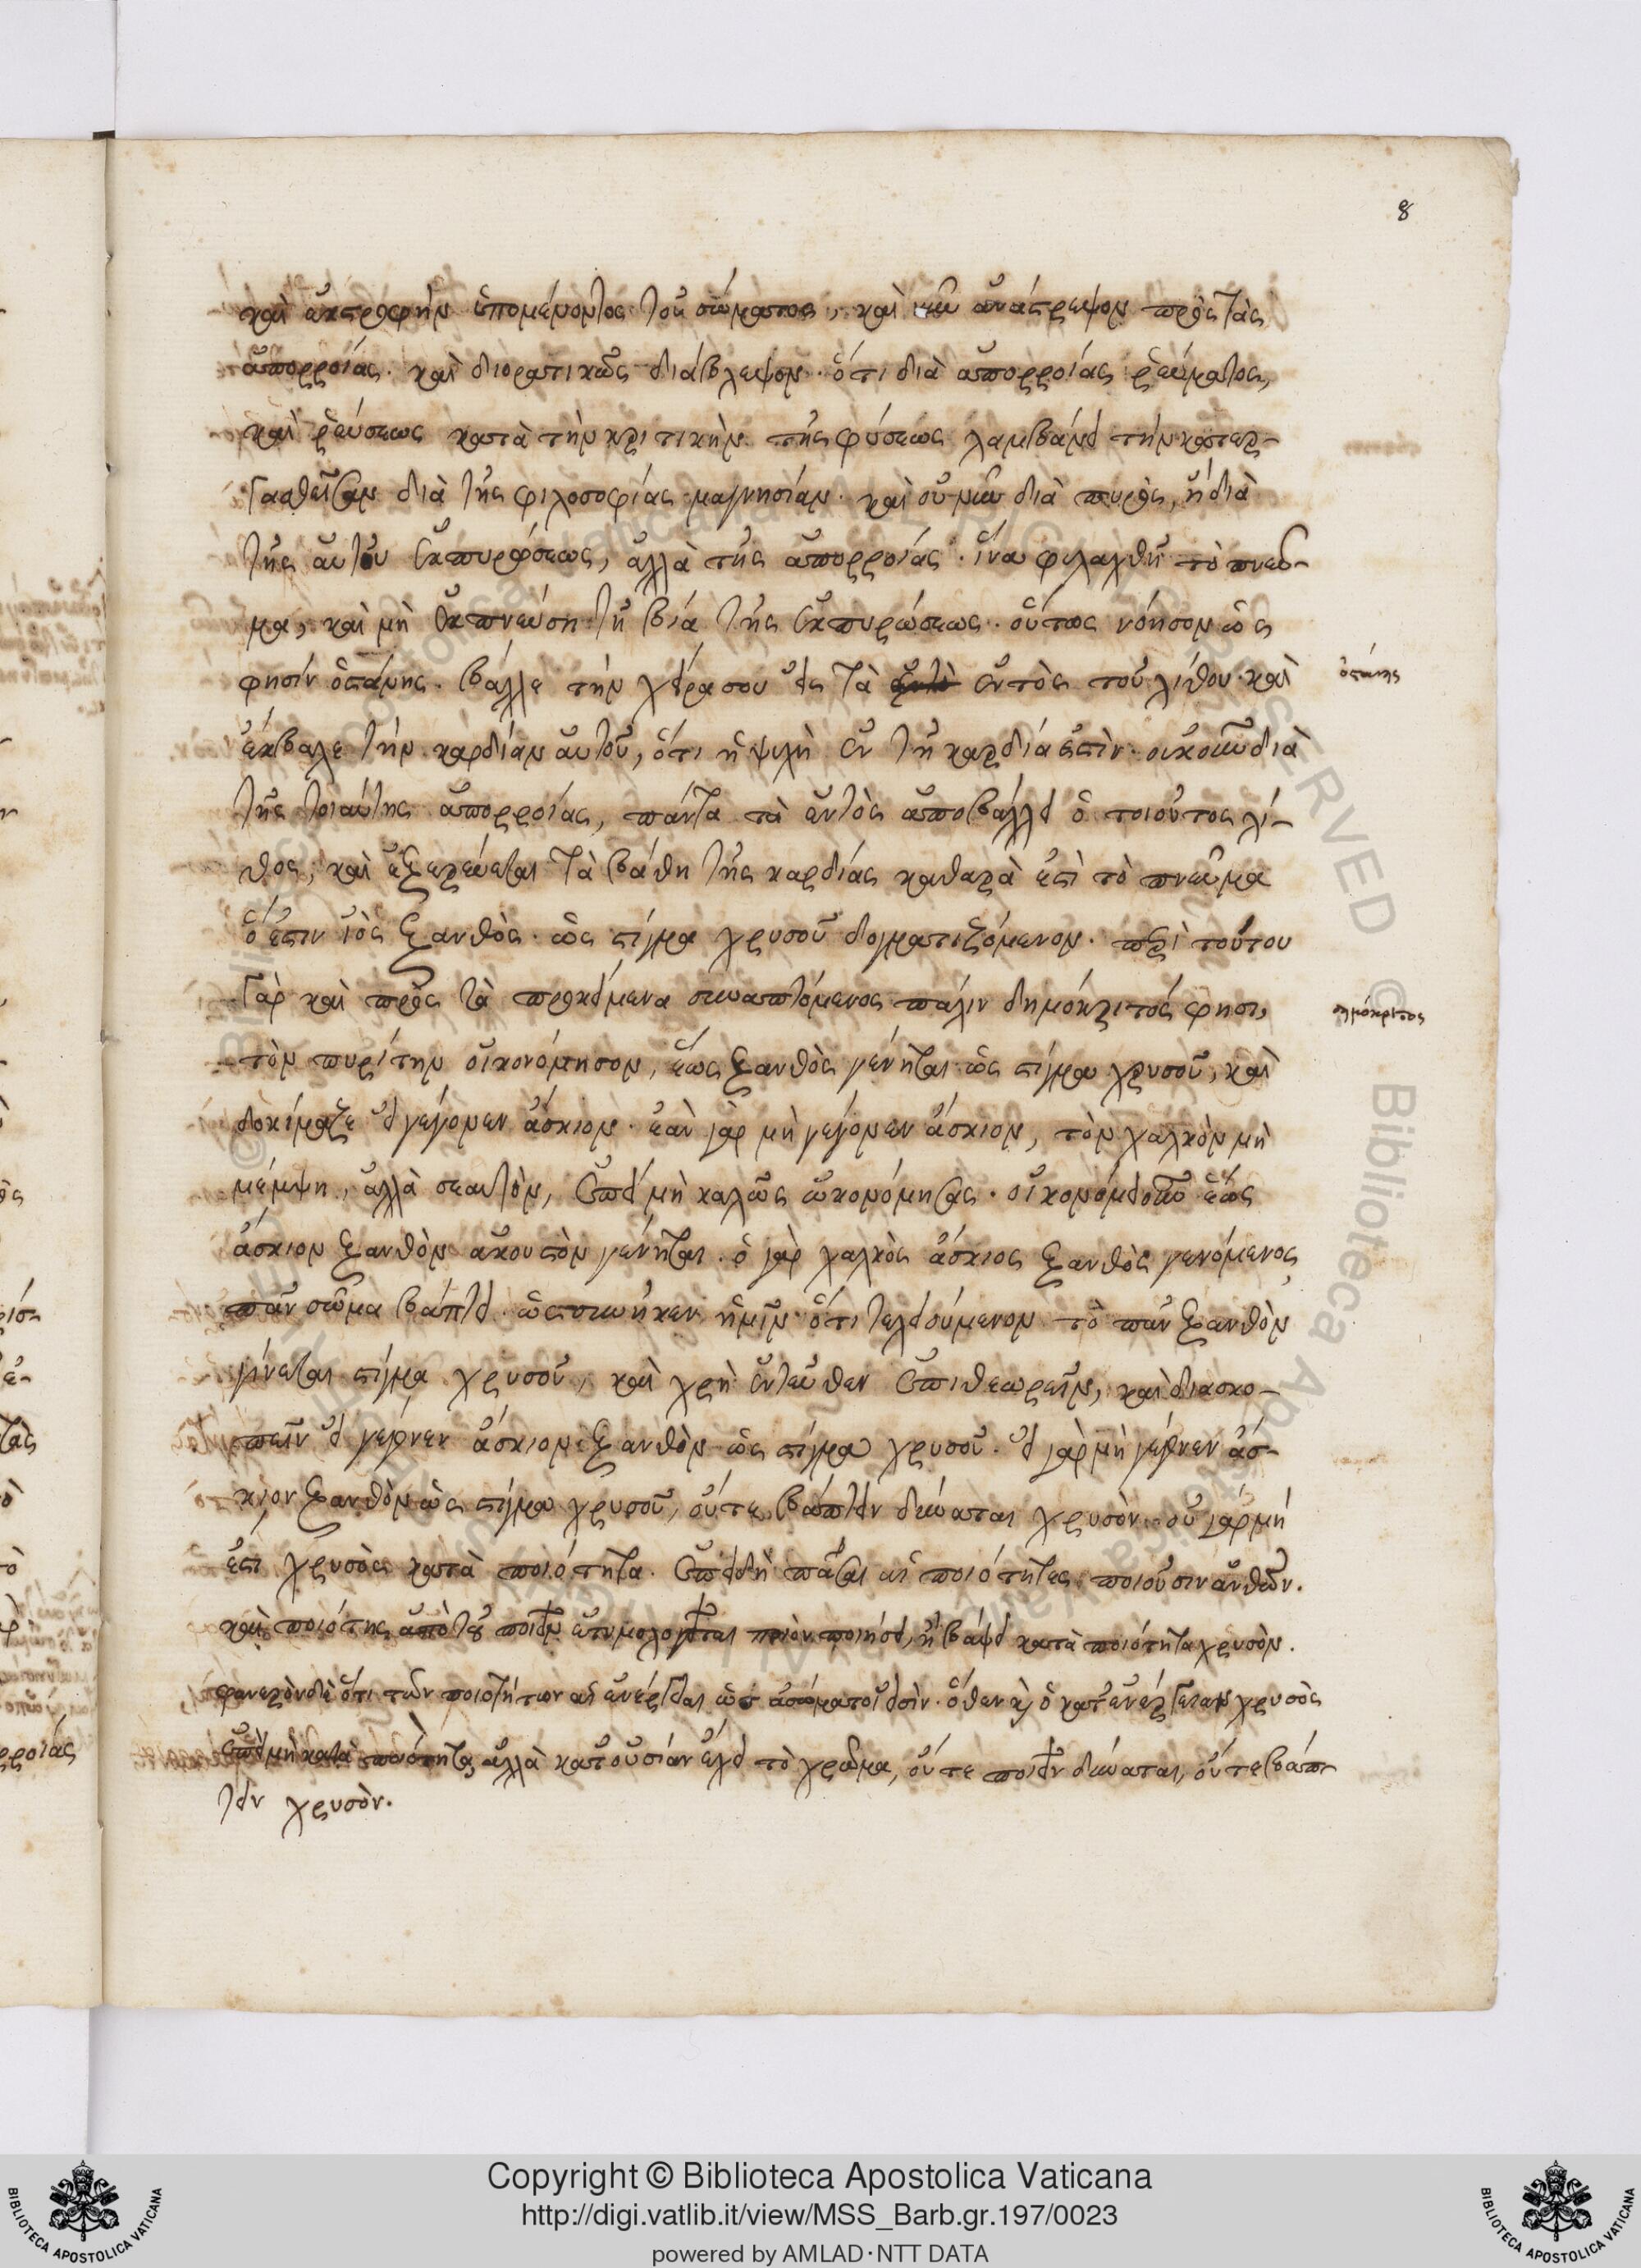 8
καὶ ἐκστροφὴν ἑπομένοντος τοῦ σώματος, καὶ νῦν ἀνάστρεψον πρὸς τὰς
ἀπορροίας. καὶ διορατικῶς διάβλεψον. ὅτι διὰ ἀπορροίας ῥεύματος,
καὶ ῥεύσεως κατὰ τὴν κριτικὴν τῆς φύσεως λαμβάνει τὴν κατερ-
γασθεῖσαν διὰ τῆς φιλοσοφίας μαγνησίαν. καὶ οὐ νῦν διὰ πυρὸς, ἢ διὰ
τῆς αὐτοῦ ἐκπυρώσεως, ἀλλὰ τῆς ἀπορροίας. ἵνα φυλαχθῇ τὸ πνεῦ-
μα, καὶ μὴ ἐκπνεύσῃ τῇ βίᾳ τῆς ἐκπυρώσεως. οὕτως νόησον ὥς
φησὶν ὀστάνης. βάλλε τὴν χεῖρα σου εἰς τὰ ἐντὸς τοῦ λίθου. καὶ
ὀστάνης
ἔκβαλε τὴν καρδίαν αὐτοῦ, ὅτι ἡ ψυχὴ ἐν τῇ καρδίᾳ ἐστὶν. οὐκοῦν διὰ
τῆς τοιαύτης ἀπορροίας, πάντα τὰ ἐντὸς ἀποβάλλει ὁ τοιοῦτος λί-
θος, καὶ ἐξερεύεται τὰ βάθη τῆς καρδίας καθαρὰ ἐστὶ τὸ πνεῦμα
ὅ ἐστιν ἰὸς ξανθὸς. ὡς στίγμα χρυσοῦ δογματιζόμενον. περὶ τούτου
γὰρ καὶ πρὸς τὰ προκείμενα συναπτόμενος πάλιν δημόκριτός φησι,
δημόκριτος
τὸν πυρίτην οἰκονόμησον, ἕως ξανθὸς γένηται ὡς στίγμα χρυσοῦ, καὶ
δοκίμαζε εἰ γέγονεν ἄσκιον. ἐὰν γὰρ μὴ γέγονεν ἄσκιον, τὸν χαλκὸν μὴ
μέμψῃ, ἀλλὰ σεαυτὸν, ἐπεὶ μὴ καλῶς ὠκονόμησας. οἰκονόμει οὖν ἕως
ἄσκιον ξανθὸν ἀκουστὸν γένηται. ὁ γὰρ χαλκὸς ἄσκιος ξανθὸς γενόμενος
πᾶν σῶμα βάπτει. ὡς συνῆκεν ἡμῖν. ὅτι τελειούμενον τὸ πᾶν ξανθὸν
γίνεται στίγμα χρυσοῦ, καὶ χρὴ ἐντεῦθεν ἐπιθεωρεῖν, καὶ διασκο-
πεῖν εἰ γέγονεν ἄσκιον ξανθὸν ὡς στίγμα χρυσοῦ. εἰ γὰρ μὴ γέγονεν ἄσ-
κιον ξανθὸν ὡς στίγμα χρυσοῦ, οὔτε βάπτειν δύναται χρυσὸν. οὐ γάρ μή
ἐστι χρυσὸς κατὰ ποιότητα. ἐπειδὴ πᾶσαι αἱ ποιότητες ποιοῦσιν ἀνθῶν.
καὶ ποιότης ἀπὸ τοῦ ποιεῖν ἐτυμολογεῖται ποιὸν ποιήσει, ἢ βάψει κατὰ ποιότητα χρυσὸν.
φανερὸν δὲ ὅτι τῶν ποιοτήτων αἱ ἐνέργειαι ὡς ἀσώματοι εἰσὶν. ὅθεν καὶ ὁ κατ' ἐνέργειαν χρυσὸς
ἐπεὶ μὴ κατὰ ποιότητα ἀλλὰ κατ' οὐσίαν ἔχει τὸ χρῶμα, οὔτε ποιεῖν δύναται, οὔτε βάπ-
τειν χρυσὸν.
Copyright © Biblioteca Apostolica Vaticana
http://digi.vatlib.it/view/MSS_Barb.gr.197/0023
powered by AMLAD·NTT DATA
BIBLIOTECA APOSTOLICA VATICANA
BIBLIOTECA APOSTOLICA VATICANA